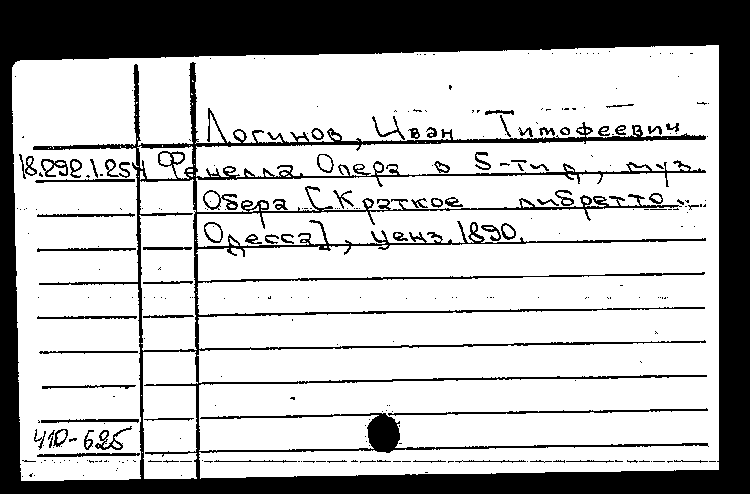 Логинов, Иван Тимофеевич
18.292.1.254 Фенелла. Опера в 5-ти д., муз.
Обера. [Краткое либретто.
Одесса], ценз. 1890.
410-625